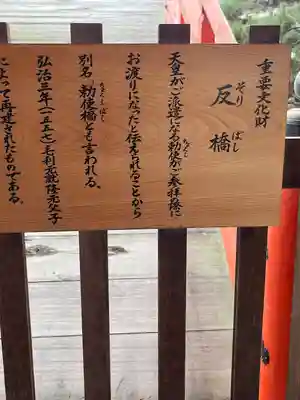 重要文化財
反橋
そりばし
天皇がご派遣になる勅使がご参拝の際に
ちょくし
お渡りになったと伝えられることから
別名 勅使橋とも言われる。
ちょくしばし
弘治三年(一五五七)毛利元就隆元父子
によって再建されたものである。